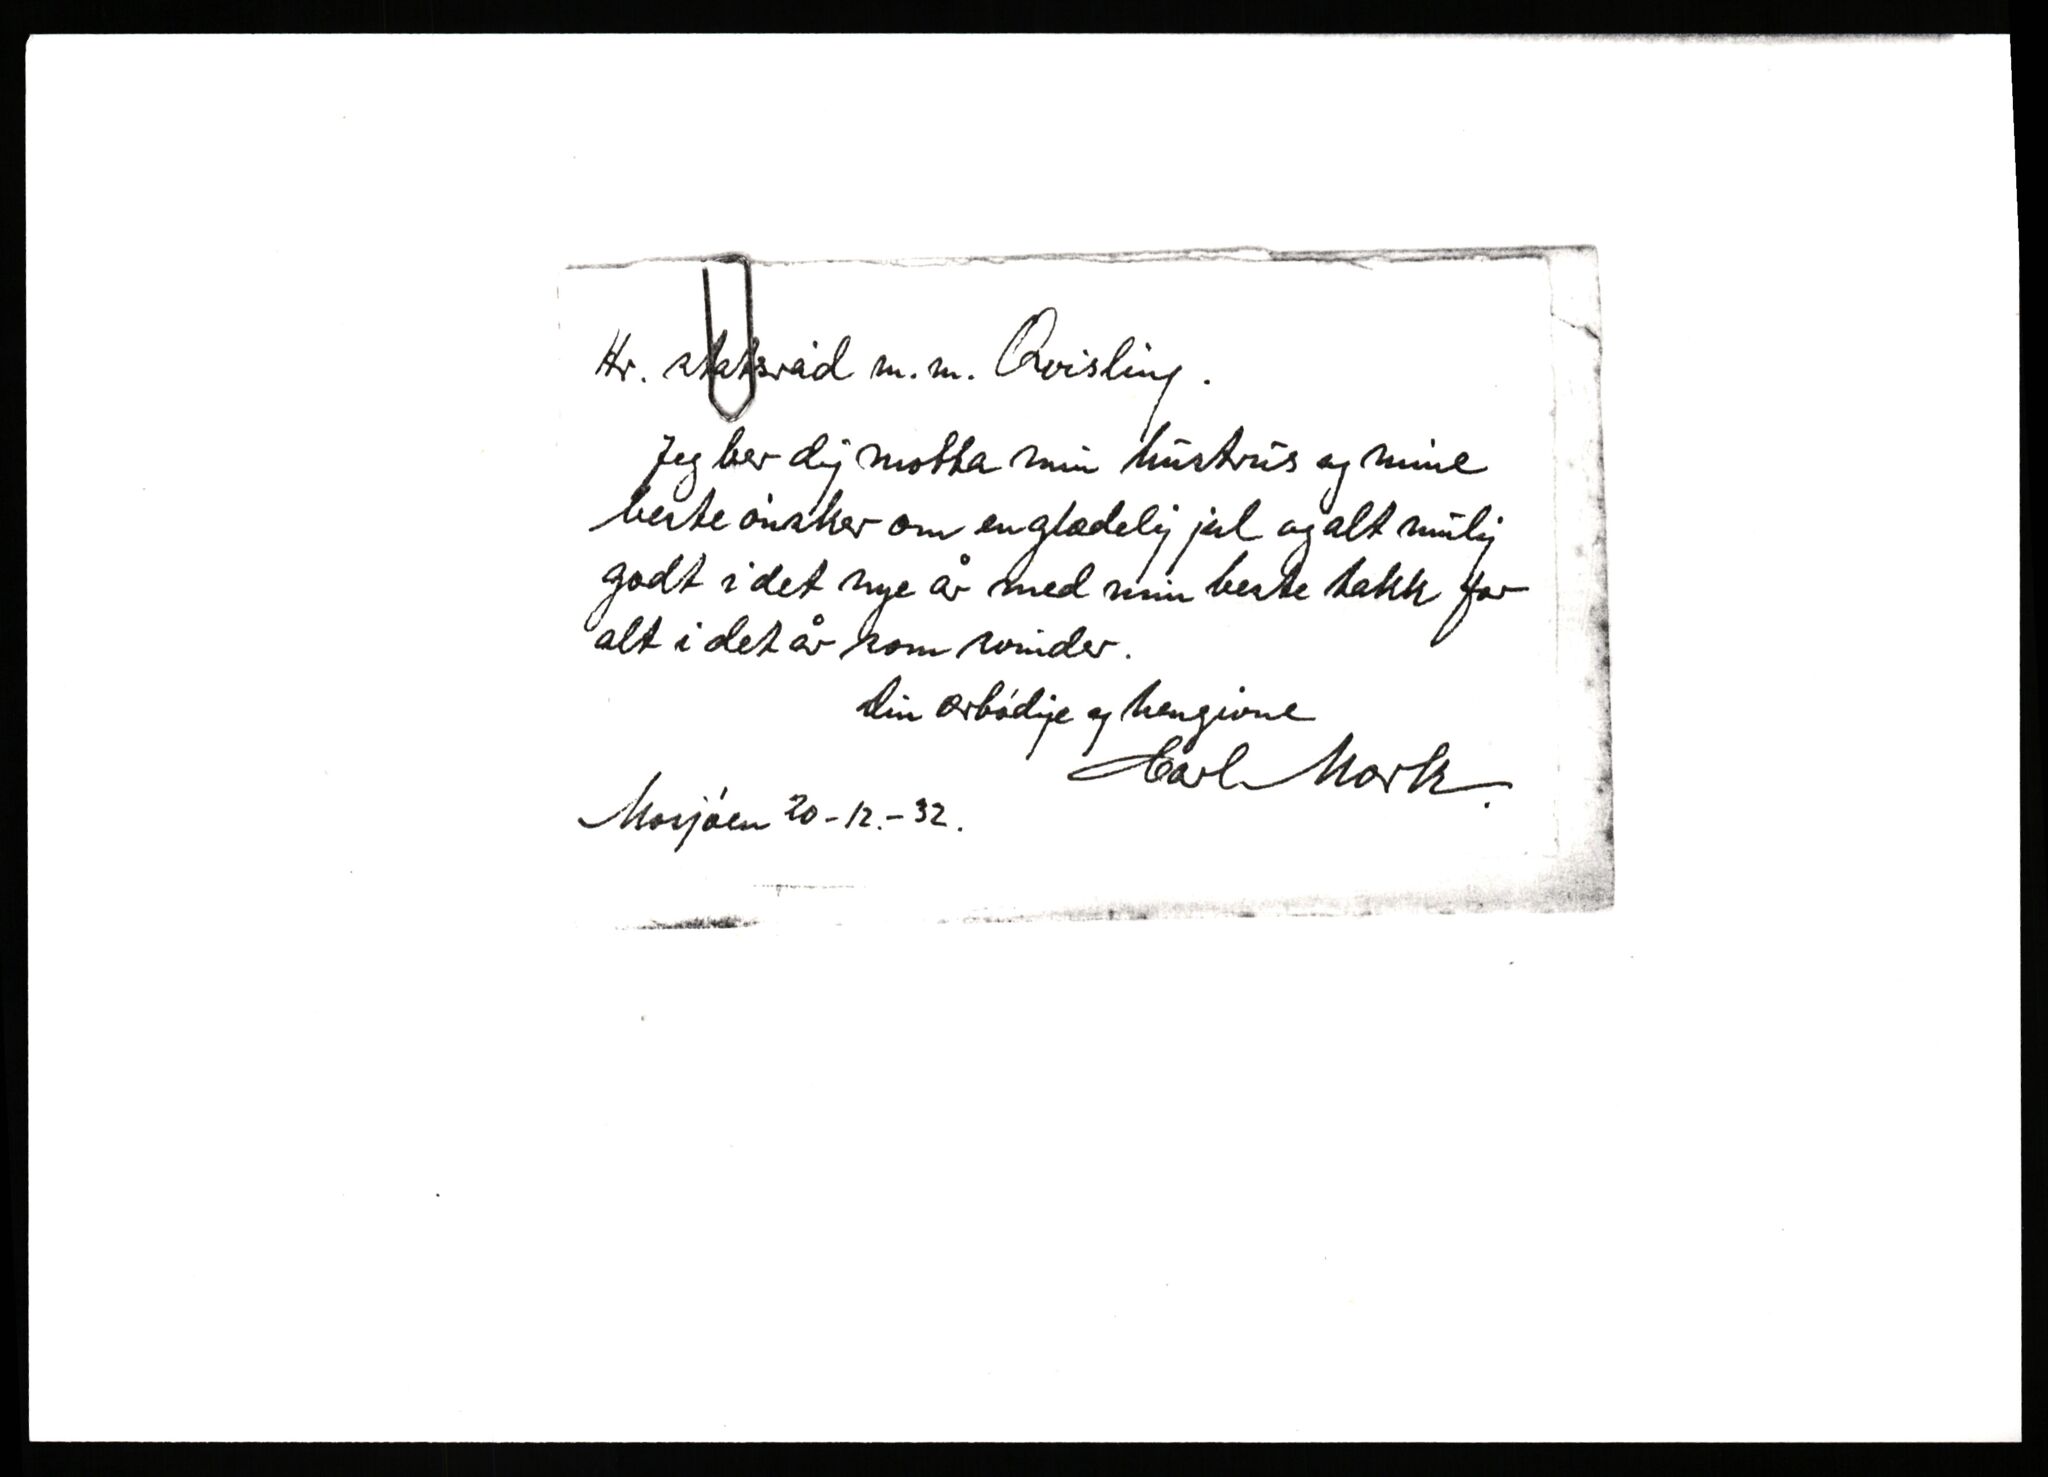 Hr. statsråd m.m. Qvisling.
Jeg ber dig motta min hustrus og mine
beste ønsker om en glædelig jul og alt mulig
godt i det nye år med min beste takk for
alt i det år som svinder.
Din ærbødige og hengivne
Carl Mork.
Mosjøen 20-12.-32.